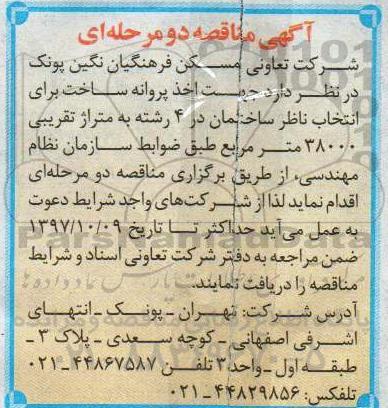 آگهی مناقصه دو مرحله‌ای
شرکت تعاونی مسکن فرهنگیان نگین پونک
در نظر دارد جهت اخذ پروانه ساخت برای
انتخاب ناظر ساختمان در ۴ رشته به متراژ تقریبی
۳۸۰۰۰ متر مربع طبق ضوابط سازمان نظام
مهندسی، از طریق برگزاری مناقصه دو مرحله‌ای
اقدام نماید لذا از شرکت‌های واجد شرایط دعوت
به عمل می‌آید حداکثر تا تاریخ ۱۳۹۷/۱۰/۰۹
ضمن مراجعه به دفتر شرکت تعاونی اسناد و شرایط
مناقصه را دریافت نمایند.
آدرس شرکت: تهران ـ پونک ـ انتهای
اشرفی اصفهانی ـ کوچه سعدی ـ پلاک ۳ ـ
طبقه اول ـ واحد ۳ تلفن ۴۴۸۶۷۵۸۷ ـ ۰۲۱
تلفکس: ۴۴۸۲۹۸۵۶ ـ ۰۲۱